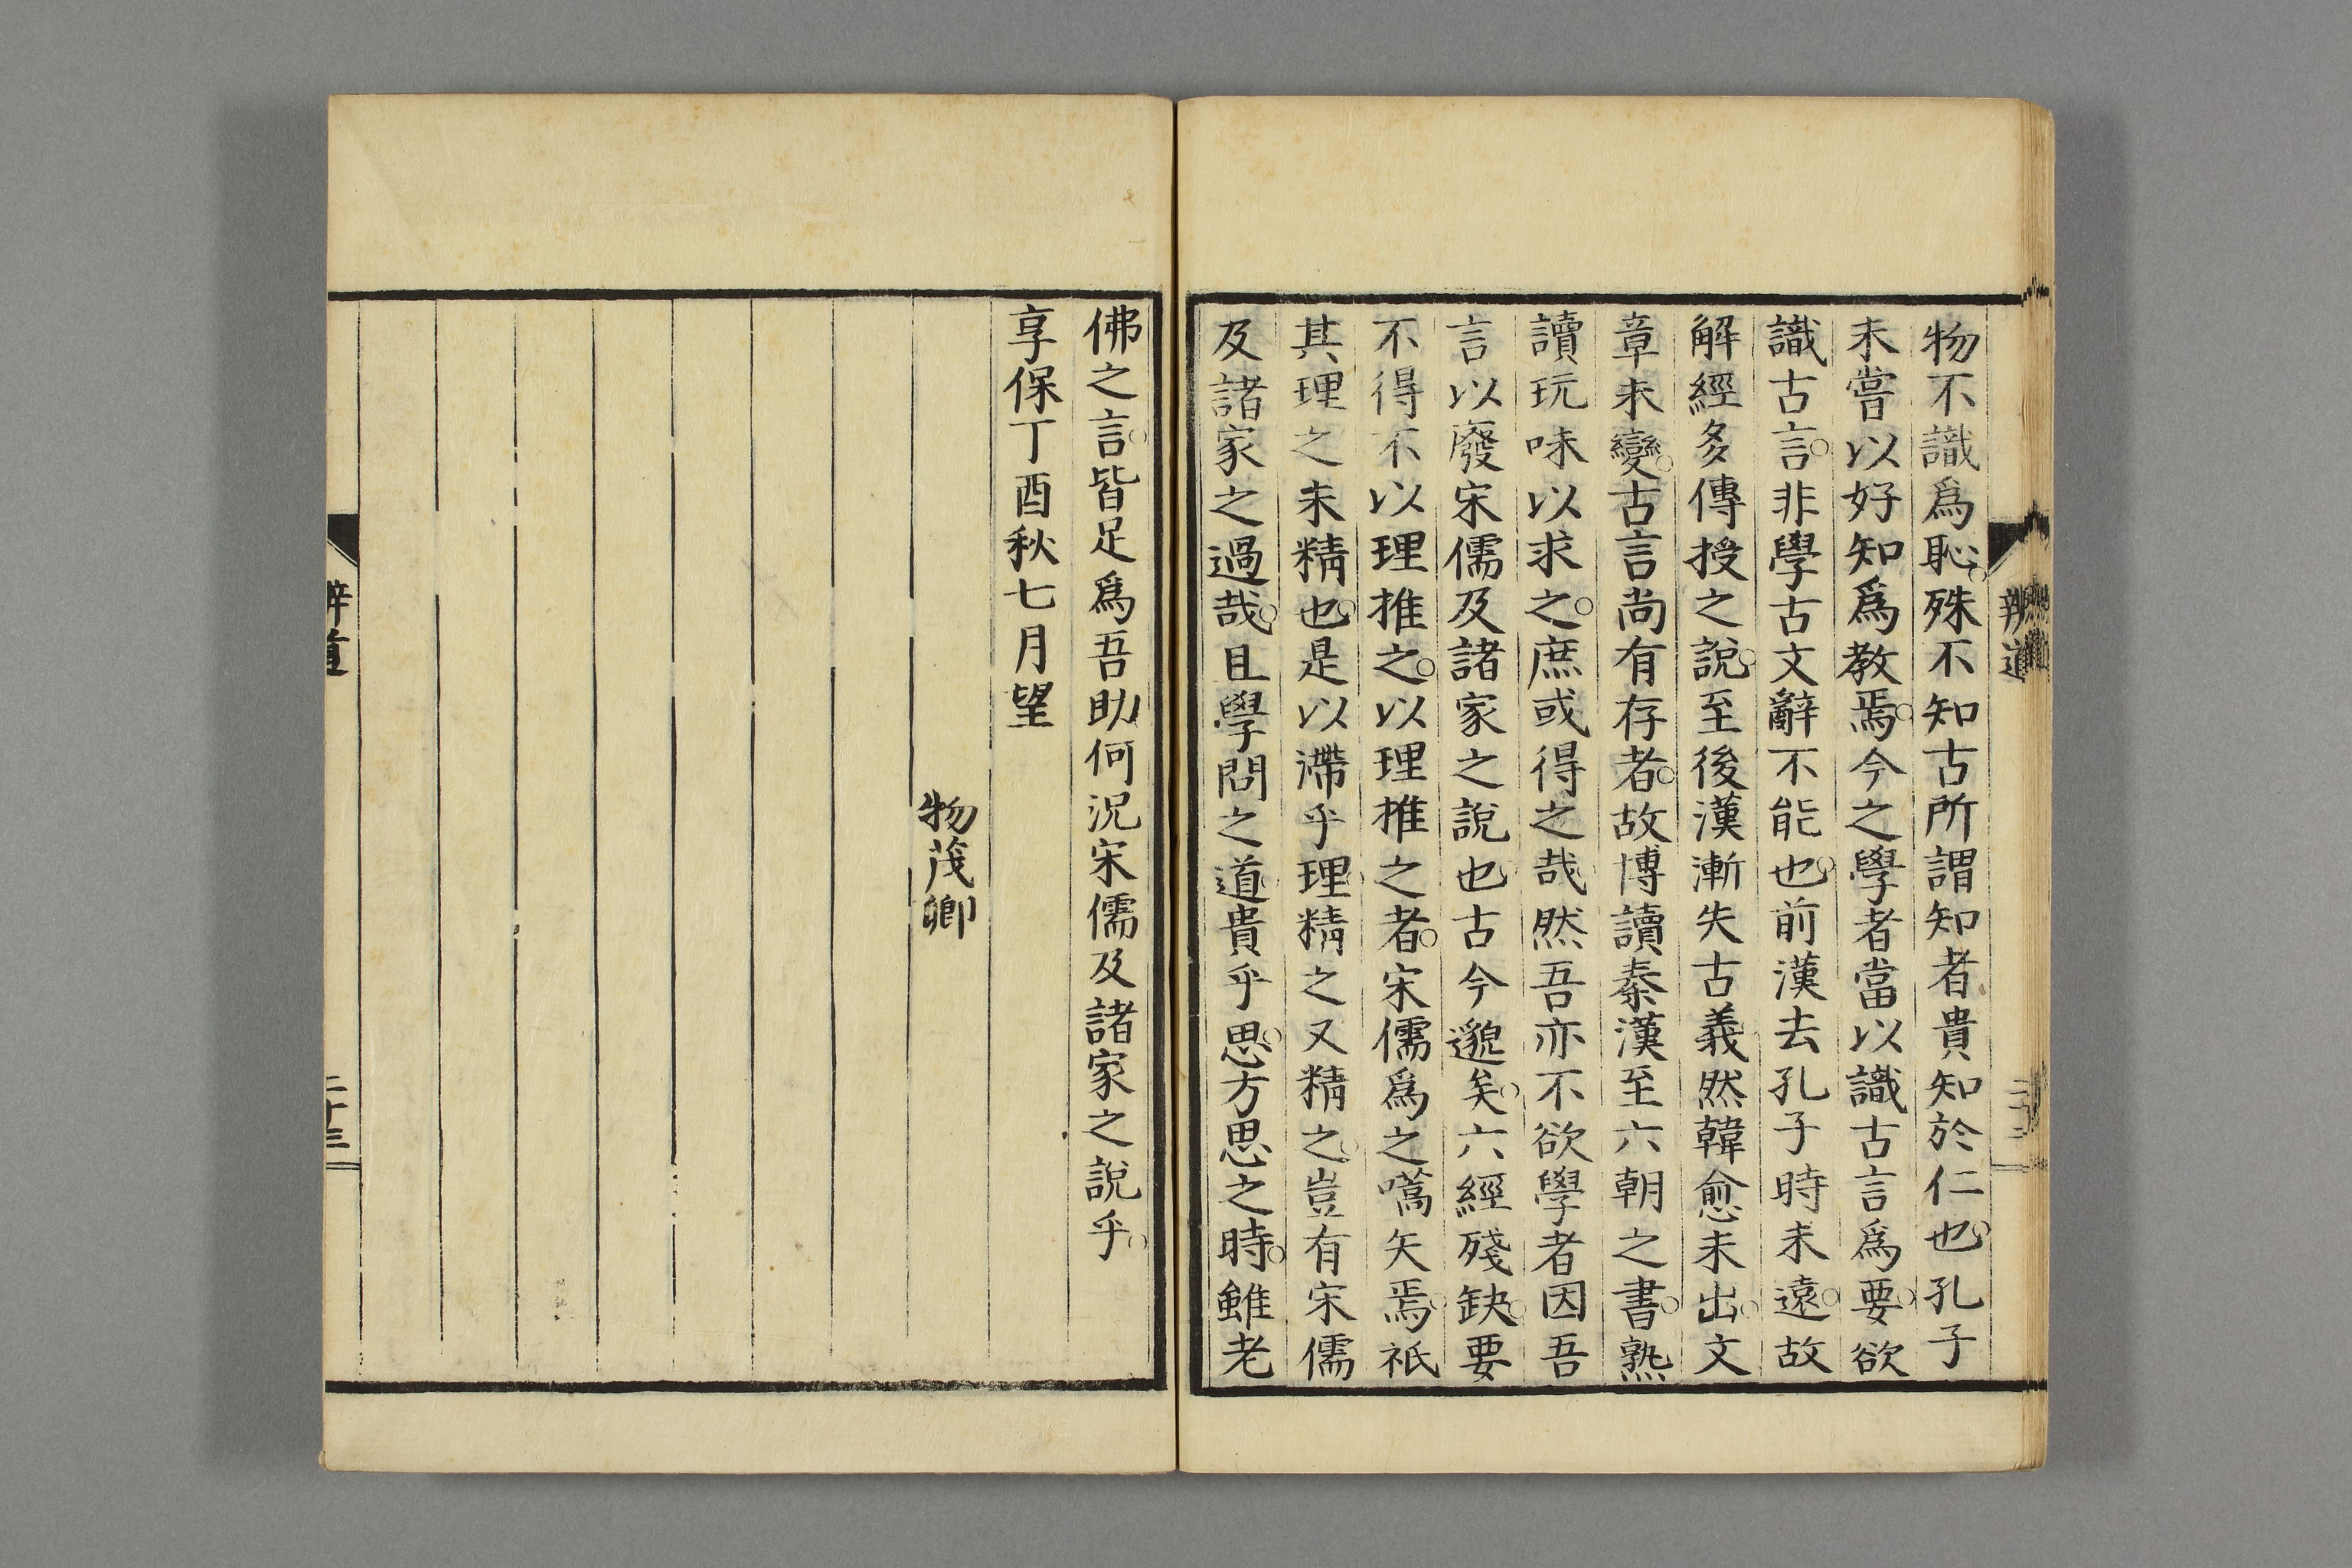 物不識爲恥殊不知古所謂知者貴知於仁也孔子
未嘗以好知爲教焉今之學者當以識古言爲要欲
識古言非學古文辭不能也前漢去孔子時未遠故
解經多傳授之說至後漢漸失古義然韓愈未出文
章未變古言尚有存者故博讀秦漢至六朝之書熟
讀玩味以求之庶或得之哉然吾亦不欲學者因吾
言以廢宋儒及諸家之說也古今邈矣六經殘缺要
不得不以理推之以理推之者宋儒爲之嚆矢焉祇
其理之未精也是以滯乎理精之又精之豈有宋儒
及諸家之過哉且學問之道貴乎思方思之時雖老
佛之言皆足爲吾助何況宋儒及諸家之說乎
享保丁酉秋七月望
物茂卿
辨道
二十三